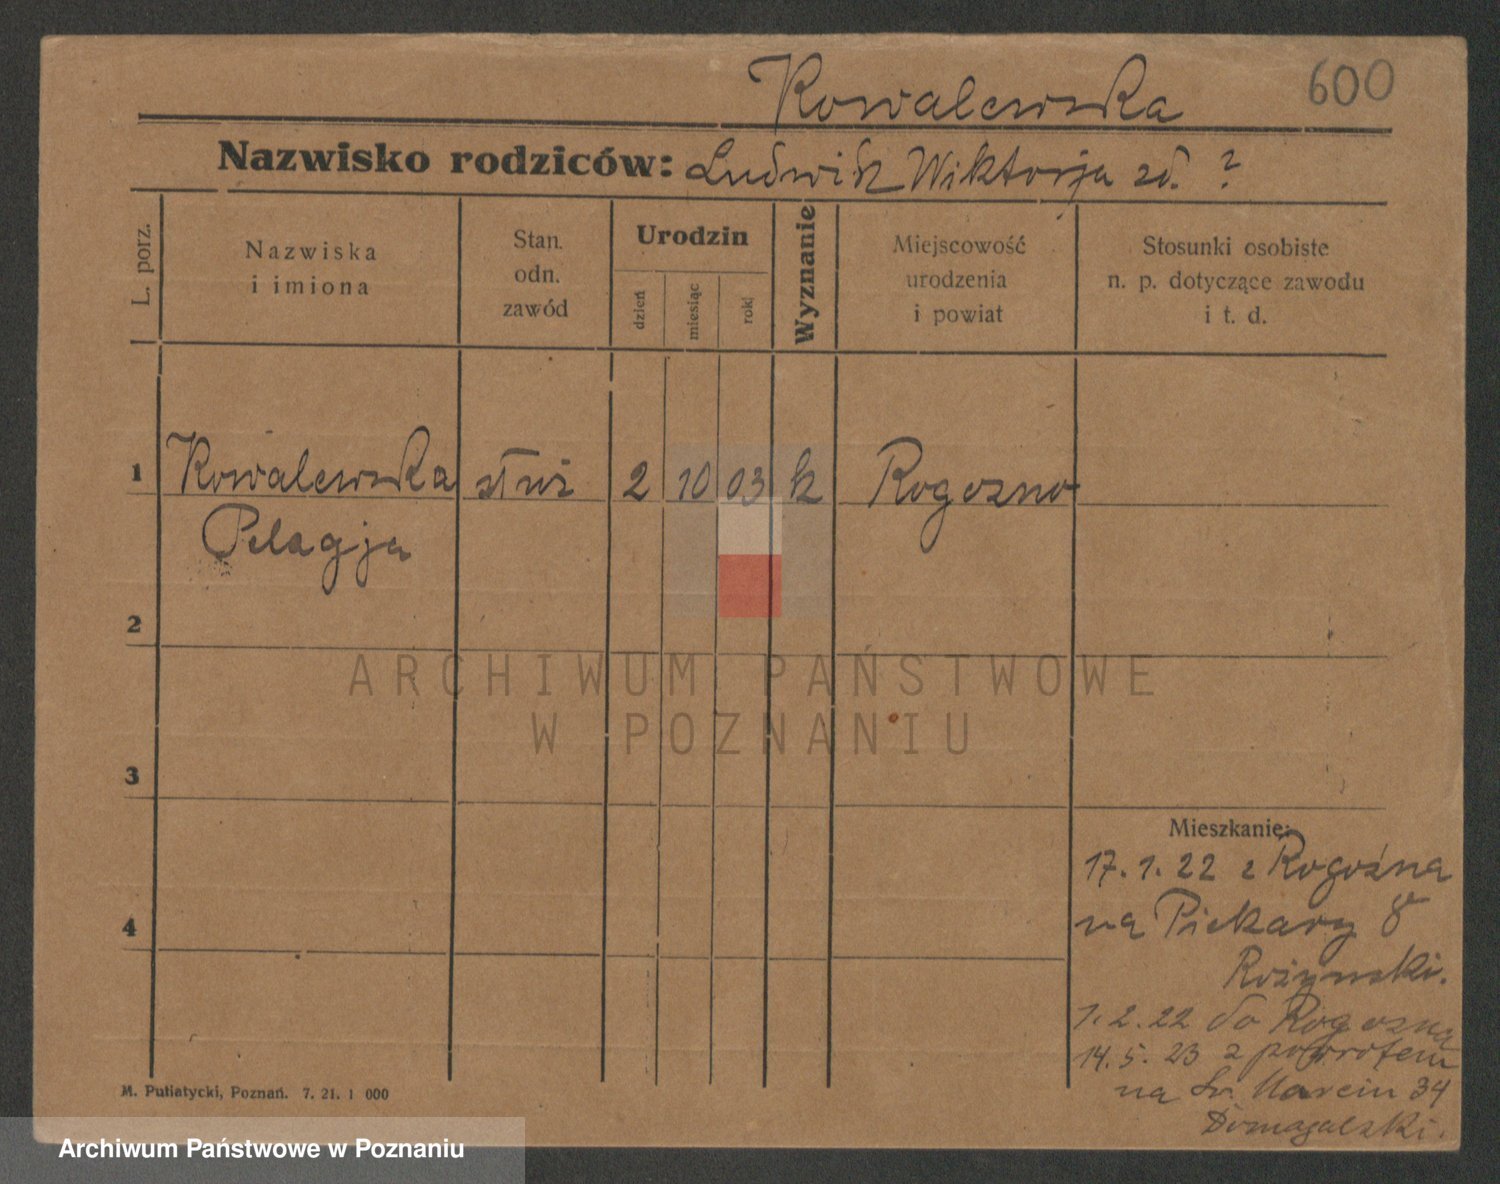 Kowalewska 600
Nazwisko rodziców: Ludwik Wiktorja zd. ?
L. porz.
Nazwiska
i imiona
Stan.
odn.
zawód
Urodzin
dzień
miesiąc
rok
Wyznanie
Miejscowość
urodzenia
i powiat
Stosunki osobiste
n. p. dotyczące zawodu
i t. d.
1 Kowalewska służ 2 10 03 k Rogozno
Pelagja
2
ARCHIWUM PAŃSTWOWE
W POZNANIU
3
Mieszkanie:
17.1.22 z Rogoźna
4 na Piekary 8
Rożynski.
1.2.22 do Rogozna
14.5.23 z powrotem
na Św. Marcin 34
Domagalski.
M. Putiatycki, Poznań. 7. 21. 1 000
Archiwum Państwowe w Poznaniu